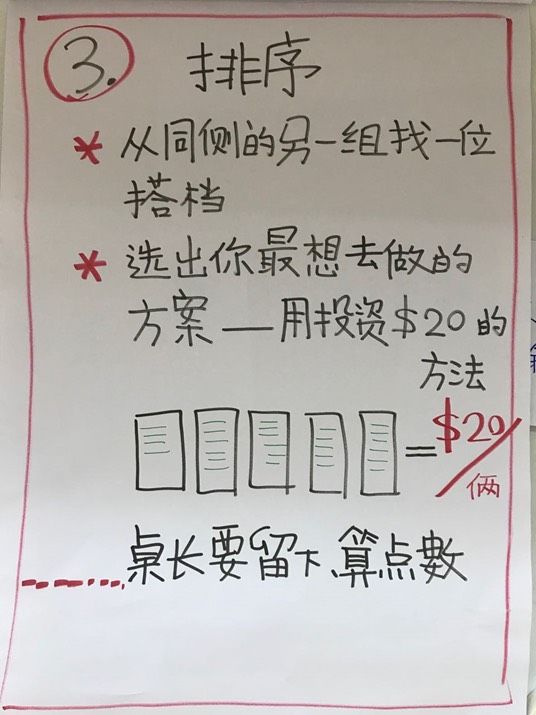 3. 排序
* 从同侧的另一组找一位
搭档
* 选出你最想去做的
方案 — 用投资$20的
方法
= $20/俩
桌长要留下、算点數